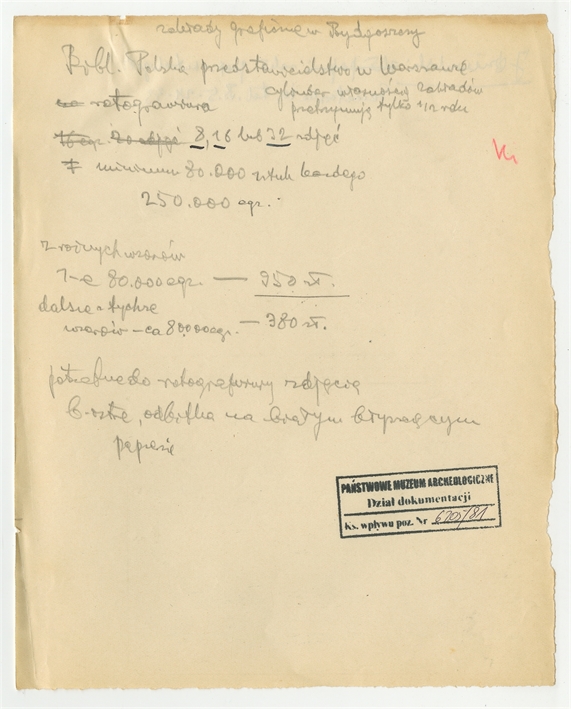 zakłady graficzne w Bydgoszczy
Bibl. Polska przedstawicielstwo w Warszawie
na rotograwiura
cylinder własnością zakładów
przetrzymują tylko 1/2 roku
16 egz. 20 zdjęć 8, 16 lub 32 zdjęć
minimum 80.000 sztuk każdego
250.000 egz.
z różnych wzorów
1-e 80.000 egz. — 950 zł.
dalsze z tychże
wzorów - ca 80000 egz. — 380 zł.
potrzebne do rotograwury zdjęcia
b. ostre, odbitka na białym błyszczącym
papierze
PAŃSTWOWE MUZEUM ARCHEOLOGICZNE
Dział dokumentacji
Ks. wpływu poz. Nr 6205/81